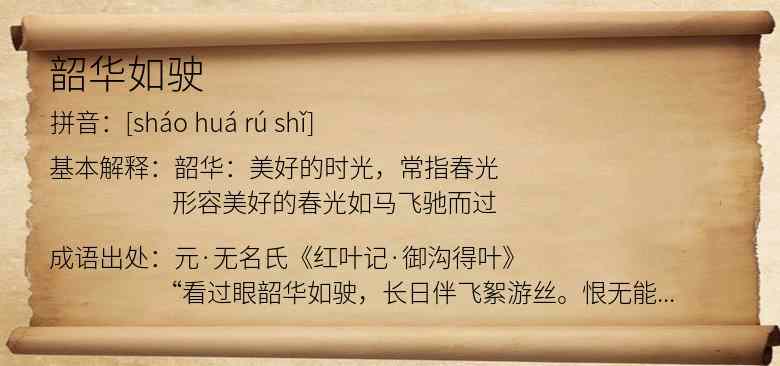 韶华如驶
拼音：[sháo huá rú shǐ]
基本解释：韶华：美好的时光，常指春光
形容美好的春光如马飞驰而过
成语出处：元·无名氏《红叶记·御沟得叶》
“看过眼韶华如驶，长日伴飞絮游丝。恨无能...